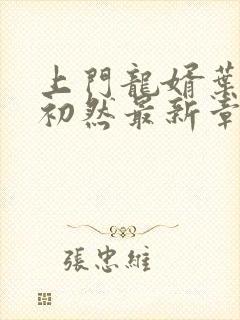 上門龍婿葉
初然最新章
張忠維